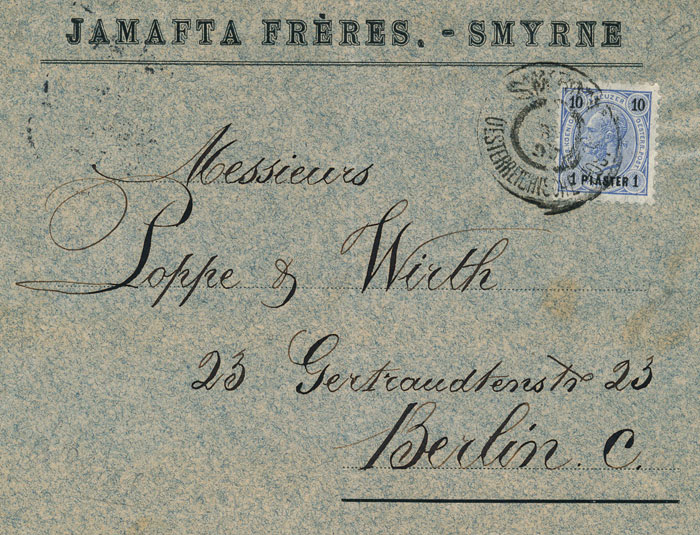 JAMAFTA FRÈRES. - SMYRNE
10 KREUZER 10
1 PIASTER 1
OESTERREICHISCHE
Messieurs
Poppe & Wirth
23 Gertraudtenstr 23
Berlin. C.